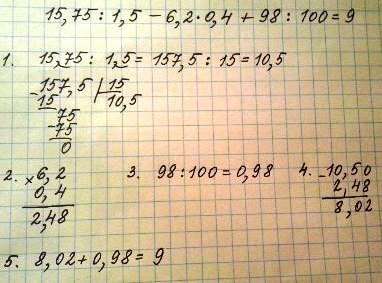 15,75 : 1,5 − 6,2 · 0,4 + 98 : 100 = 9
1. 15,75 : 1,5 = 157,5 : 15 = 10,5
−157,5 | 15
15 10,5
75
−75
0
2. × 6,2
0,4
2,48
3. 98 : 100 = 0,98
4. −10,50
2,48
8,02
5. 8,02 + 0,98 = 9